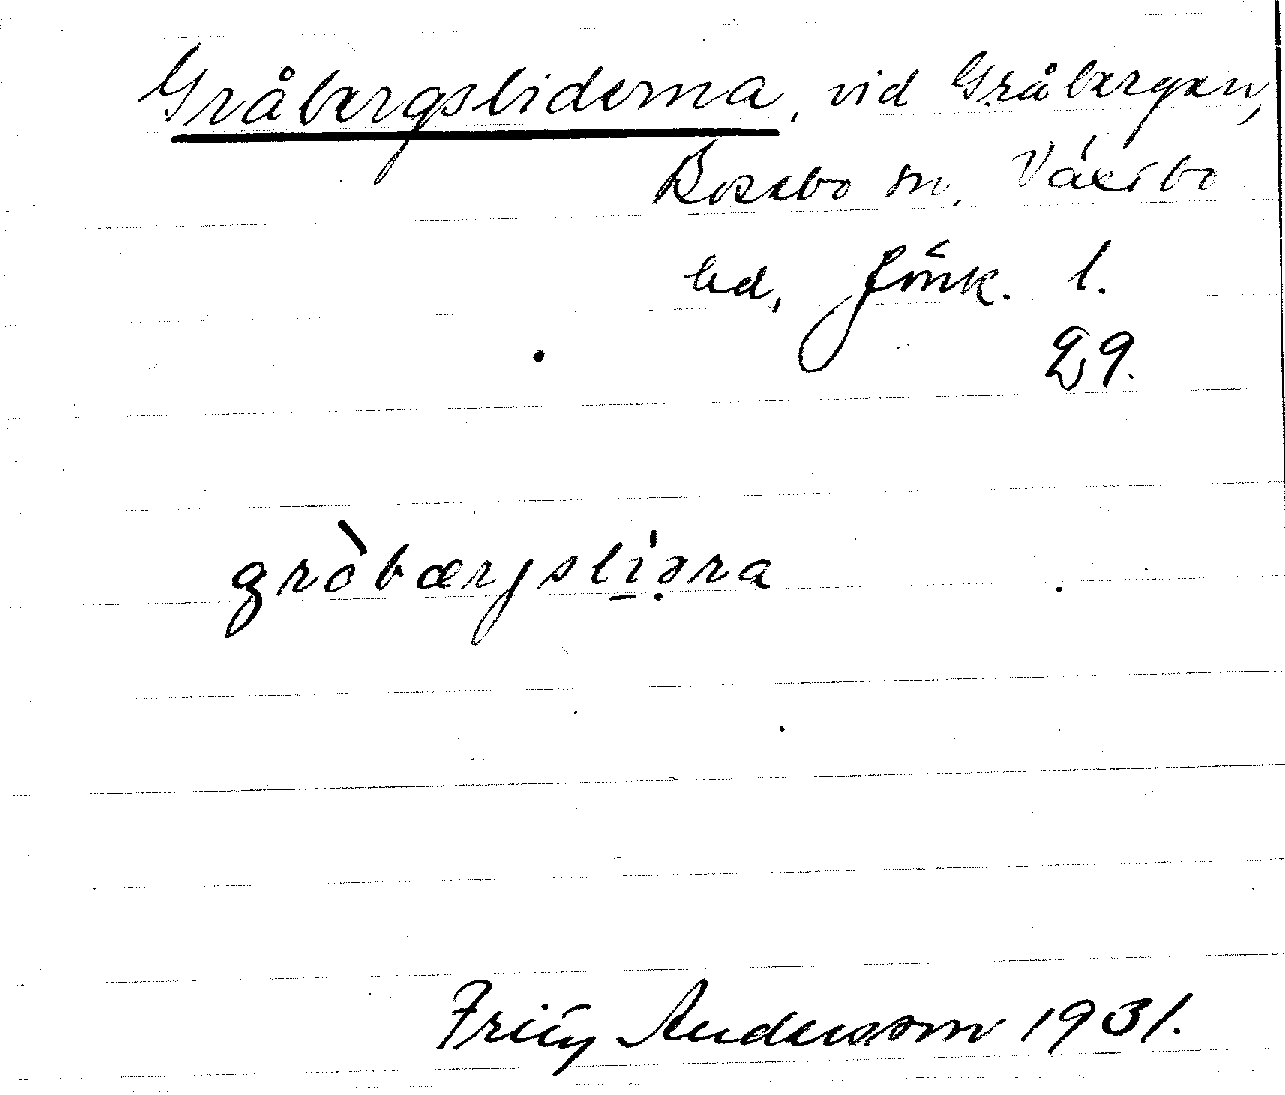 Gråbergsliderna, vid Gråbergen,
Bosebo sn, Västbo
hd, Jönk. l.
29.
gròbærjsliəra
Fritz Andersson 1931.